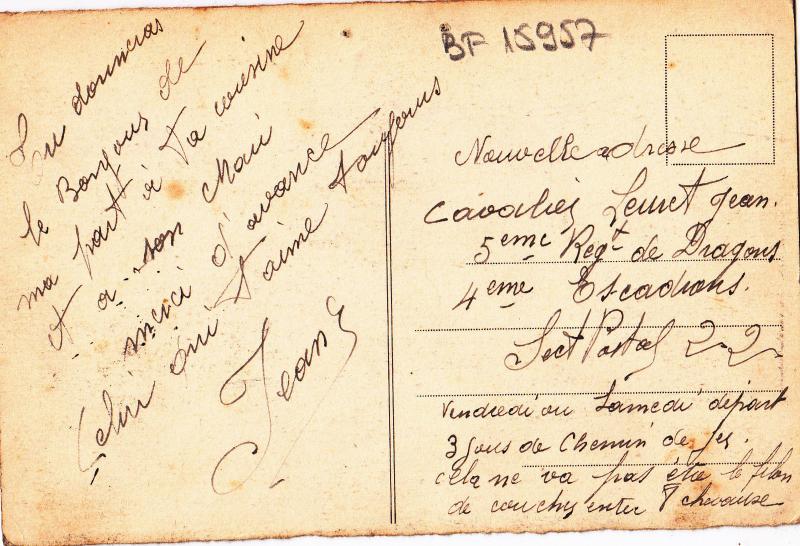 Tu donneras
le Bonjour de
ma part à ta cousine
et a son Mari
merci d'avance
Celui qui t'aime toujours
Jean
BF 15957
Nouvelle adresse
Cavalier Jean.
5eme Regt de Dragons
4eme Escadrons.
Sect Postal 22
Vendredi ou Samedi départ
3 jours de Chemin de fer.
cela ne va pas être le filon
de coucher entre 8 chevause